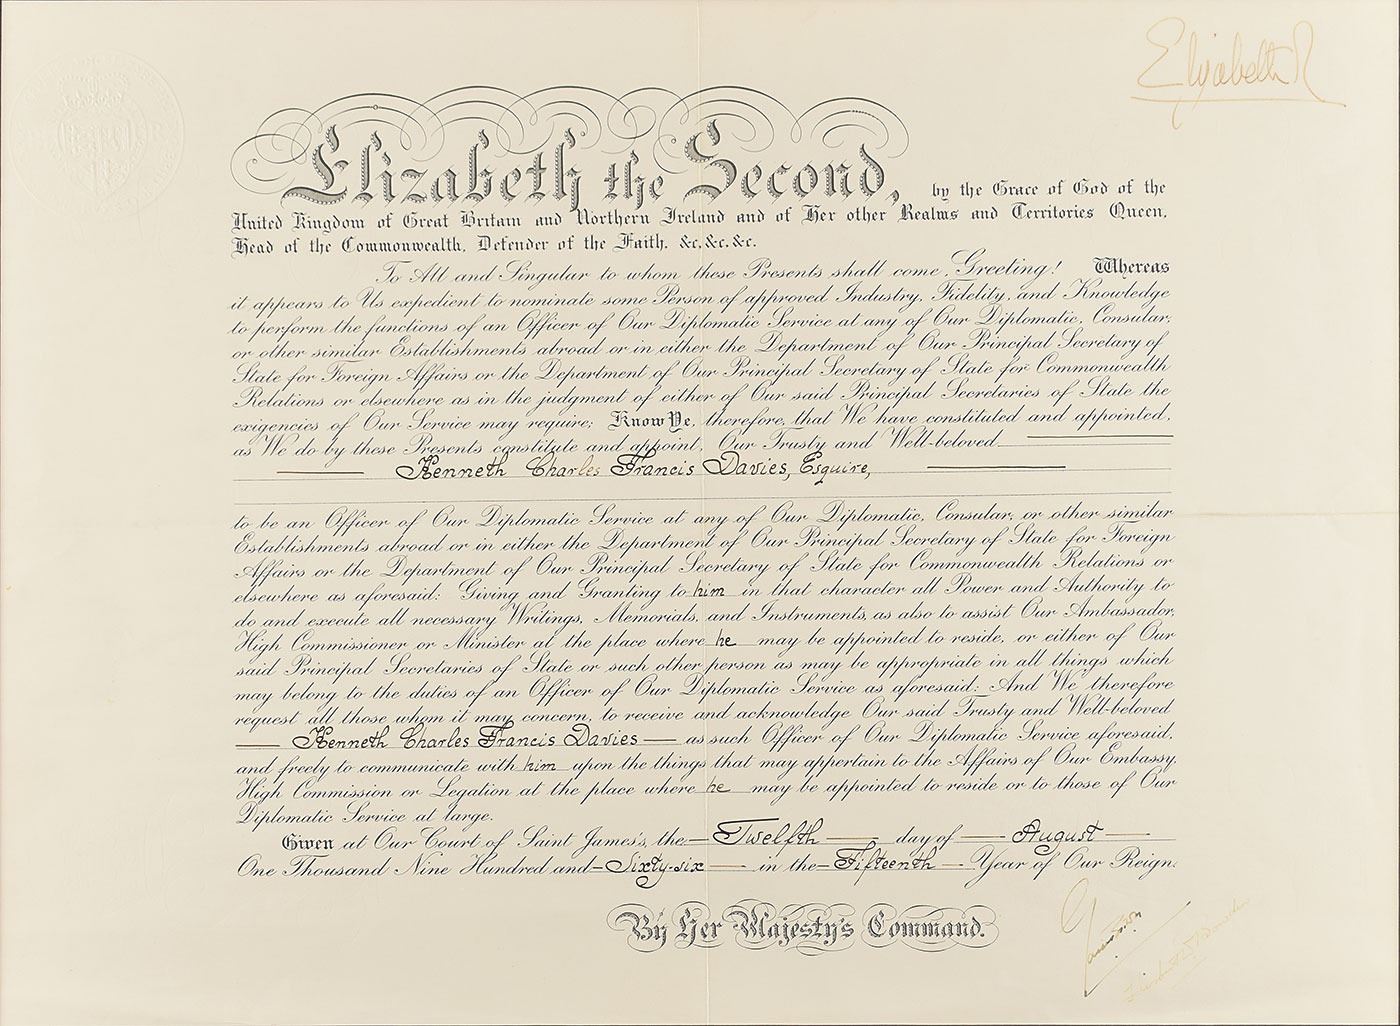 Elizabeth R
Elizabeth the Second, by the Grace of God of the
United Kingdom of Great Britain and Northern Ireland and of Her other Realms and Territories Queen,
Head of the Commonwealth, Defender of the Faith, &c, &c, &c.
To All and Singular to whom these Presents shall come, Greeting! Whereas
it appears to Us expedient to nominate some Person of approved Industry, Fidelity, and Knowledge
to perform the functions of an Officer of Our Diplomatic Service at any of Our Diplomatic, Consular,
or other similar Establishments abroad or in either the Department of Our Principal Secretary of
State for Foreign Affairs or the Department of Our Principal Secretary of State for Commonwealth
Relations or elsewhere as in the judgment of either of Our said Principal Secretaries of State the
exigencies of Our Service may require; Know Ye, therefore, that We have constituted and appointed,
as We do by these Presents constitute and appoint, Our Trusty and Well-beloved
Kenneth Charles Francis Davies, Esquire,
to be an Officer of Our Diplomatic Service at any of Our Diplomatic, Consular, or other similar
Establishments abroad or in either the Department of Our Principal Secretary of State for Foreign
Affairs or the Department of Our Principal Secretary of State for Commonwealth Relations or
elsewhere as aforesaid: Giving and Granting to him in that character all Power and Authority to
do and execute all necessary Writings, Memorials, and Instruments, as also to assist Our Ambassador,
High Commissioner or Minister at the place where he may be appointed to reside, or either of Our
said Principal Secretaries of State or such other person as may be appropriate in all things which
may belong to the duties of an Officer of Our Diplomatic Service as aforesaid: And We therefore
request all those whom it may concern, to receive and acknowledge Our said Trusty and Well-beloved
Kenneth Charles Francis Davies as such Officer of Our Diplomatic Service aforesaid,
and freely to communicate with him upon the things that may appertain to the Affairs of Our Embassy,
High Commission or Legation at the place where he may be appointed to reside or to those of Our
Diplomatic Service at large.
Given at Our Court of Saint James's, the Twelfth day of August
One Thousand Nine Hundred and Sixty-six in the Fifteenth Year of Our Reign:
By Her Majesty's Command.